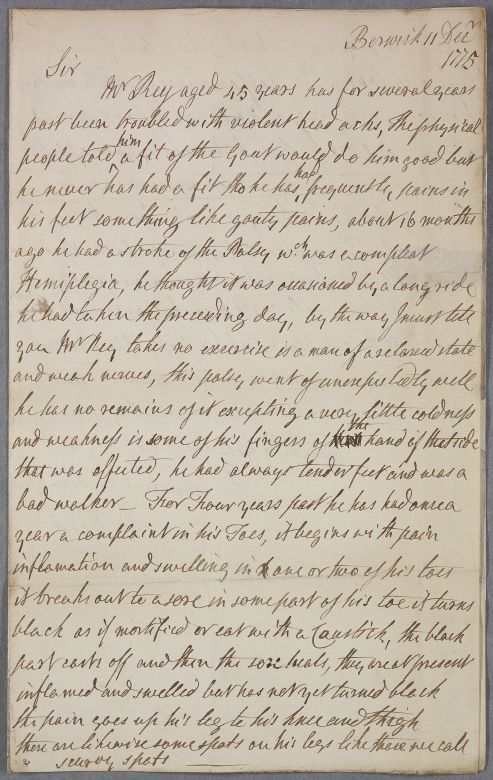 Berwick 11 Decr
1775
Sir
Mr Rey aged 45 years has for several years
past been troubled with violent head achs, The physical
people told him a fit of the Gout would do him good but
he never has had a fit tho he has had frequently pains in
his feet something like gouty pains, about 16 months
ago he had a stroke of the Palsy wch was a compleat
Hemiplegia, he thought it was occasioned by a long ride
he had taken the preceeding day, by the way I must tell
you Mr Rey takes no exercise is a man of a relaxed state
and weak nerves, this palsy went of unexpectedly well
he has no remains of it excepting a very little coldness
and weakness in some of his fingers of the hand of that side
that was affected, he had always tender feet and was a
bad walker – For Four years past he has had once a
year a complaint in his Toes, it begins with pain
inflamation and swelling in one or two of his toes
it breaks out to a sore in some part of his toe it turns
black as if mortified or eat with a Caustick, the black
part casts off and then the sore heals, they are at present
inflamed and swelled but has not yet turned black
the pain goes up his leg to his knee and thigh
there are likewise some spots on his legs like those we call
scurvy spots